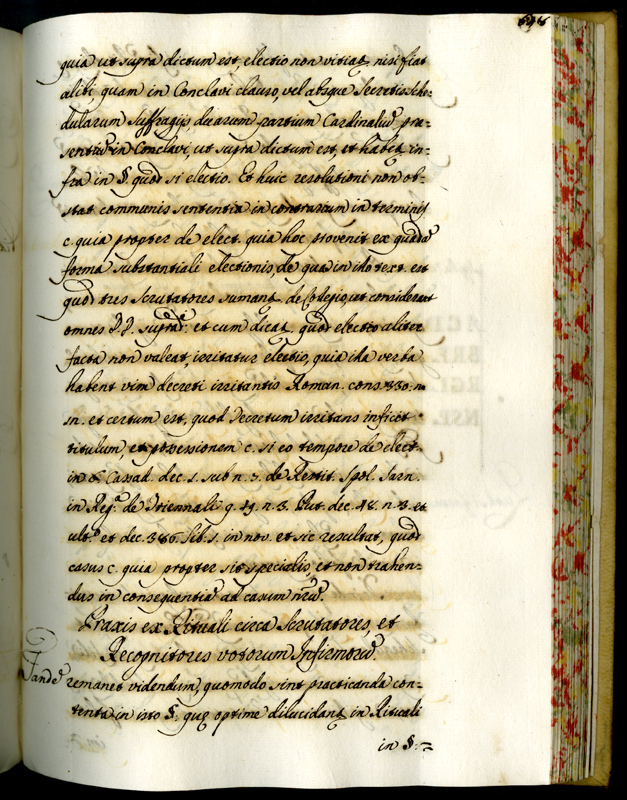 quia ut supra dictum est electio non vitiat, nisi fiat
alibi, quam in Conclavi clauso, vel absque Secretis Sche-
dularum Suffragijs, duarum partium Cardinaliũ præ-
sentiũ in Conclavi, ut supra dictum est, et habet in-
fra in §. quod si electio. Et huic resolutioni non ob-
stat communis sententia in contrarium in terminis
c. quia propter de elect. quia hoc provenit ex quadã
forma substantiali electionis, de qua in illo text. est
quod tres Scrutatores sumant de Collegio, ut considerant
omnes P.P. supra et cum dicat quod electio aliter
facta non valeat, irritatur electio, quia illa verba
habent vim decreti irritantis Roman. cons. 330. n.
in. et certum est, quod Decretum irritans inficit
titulum, et possessionem c. si eo tempore de elect.
in 6. Cassad. dec. 1. sub n. 3. de Restit. Spol. Sarn.
in Reg.ª de Triennali q. 49. n. 3. Put. dec. 48. n. 3. et
ult.º et dec. 386. lib. 1. in nov. et sic resultat, quod
casus c. quia propter sit specialis, et non trahen-
dus in consequentia ad casum nr̃ũ.
Praxis ex Rituali circa Scrutatores, et
Recognitores votorum Infirmorũ.
Tandẽ remanet videndum, quomodo sint practicanda con-
tenta in isto §. quæ optime dilucidant in Rituali
in §.